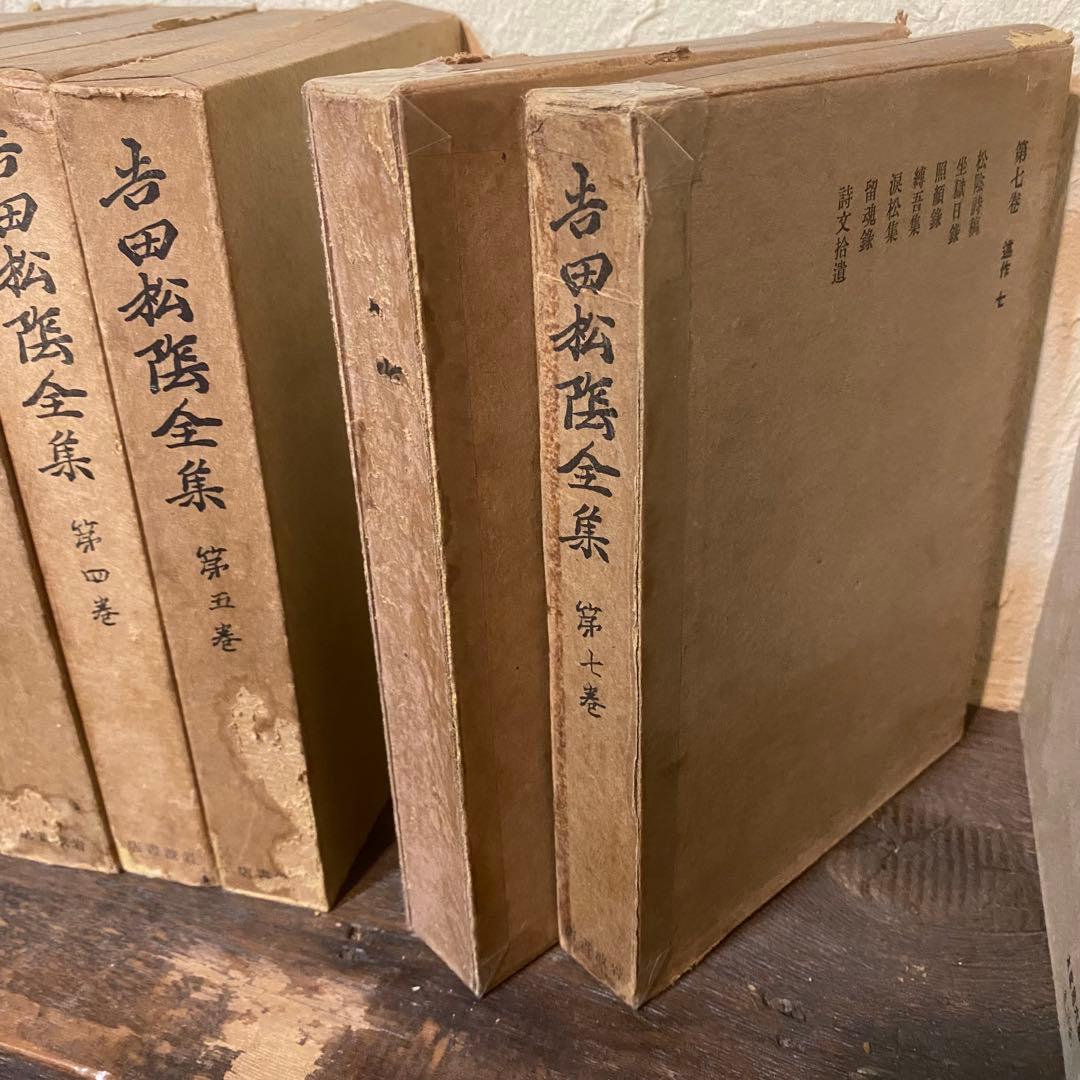 吉田松陰全集 第七巻
第七巻 述作 七
松陰詩稿
坐獄日錄
照顏錄
縛吾集
淚松集
留魂錄
詩文拾遺
吉田松陰全集 第五巻
吉田松陰全集 第四巻
岩波書店